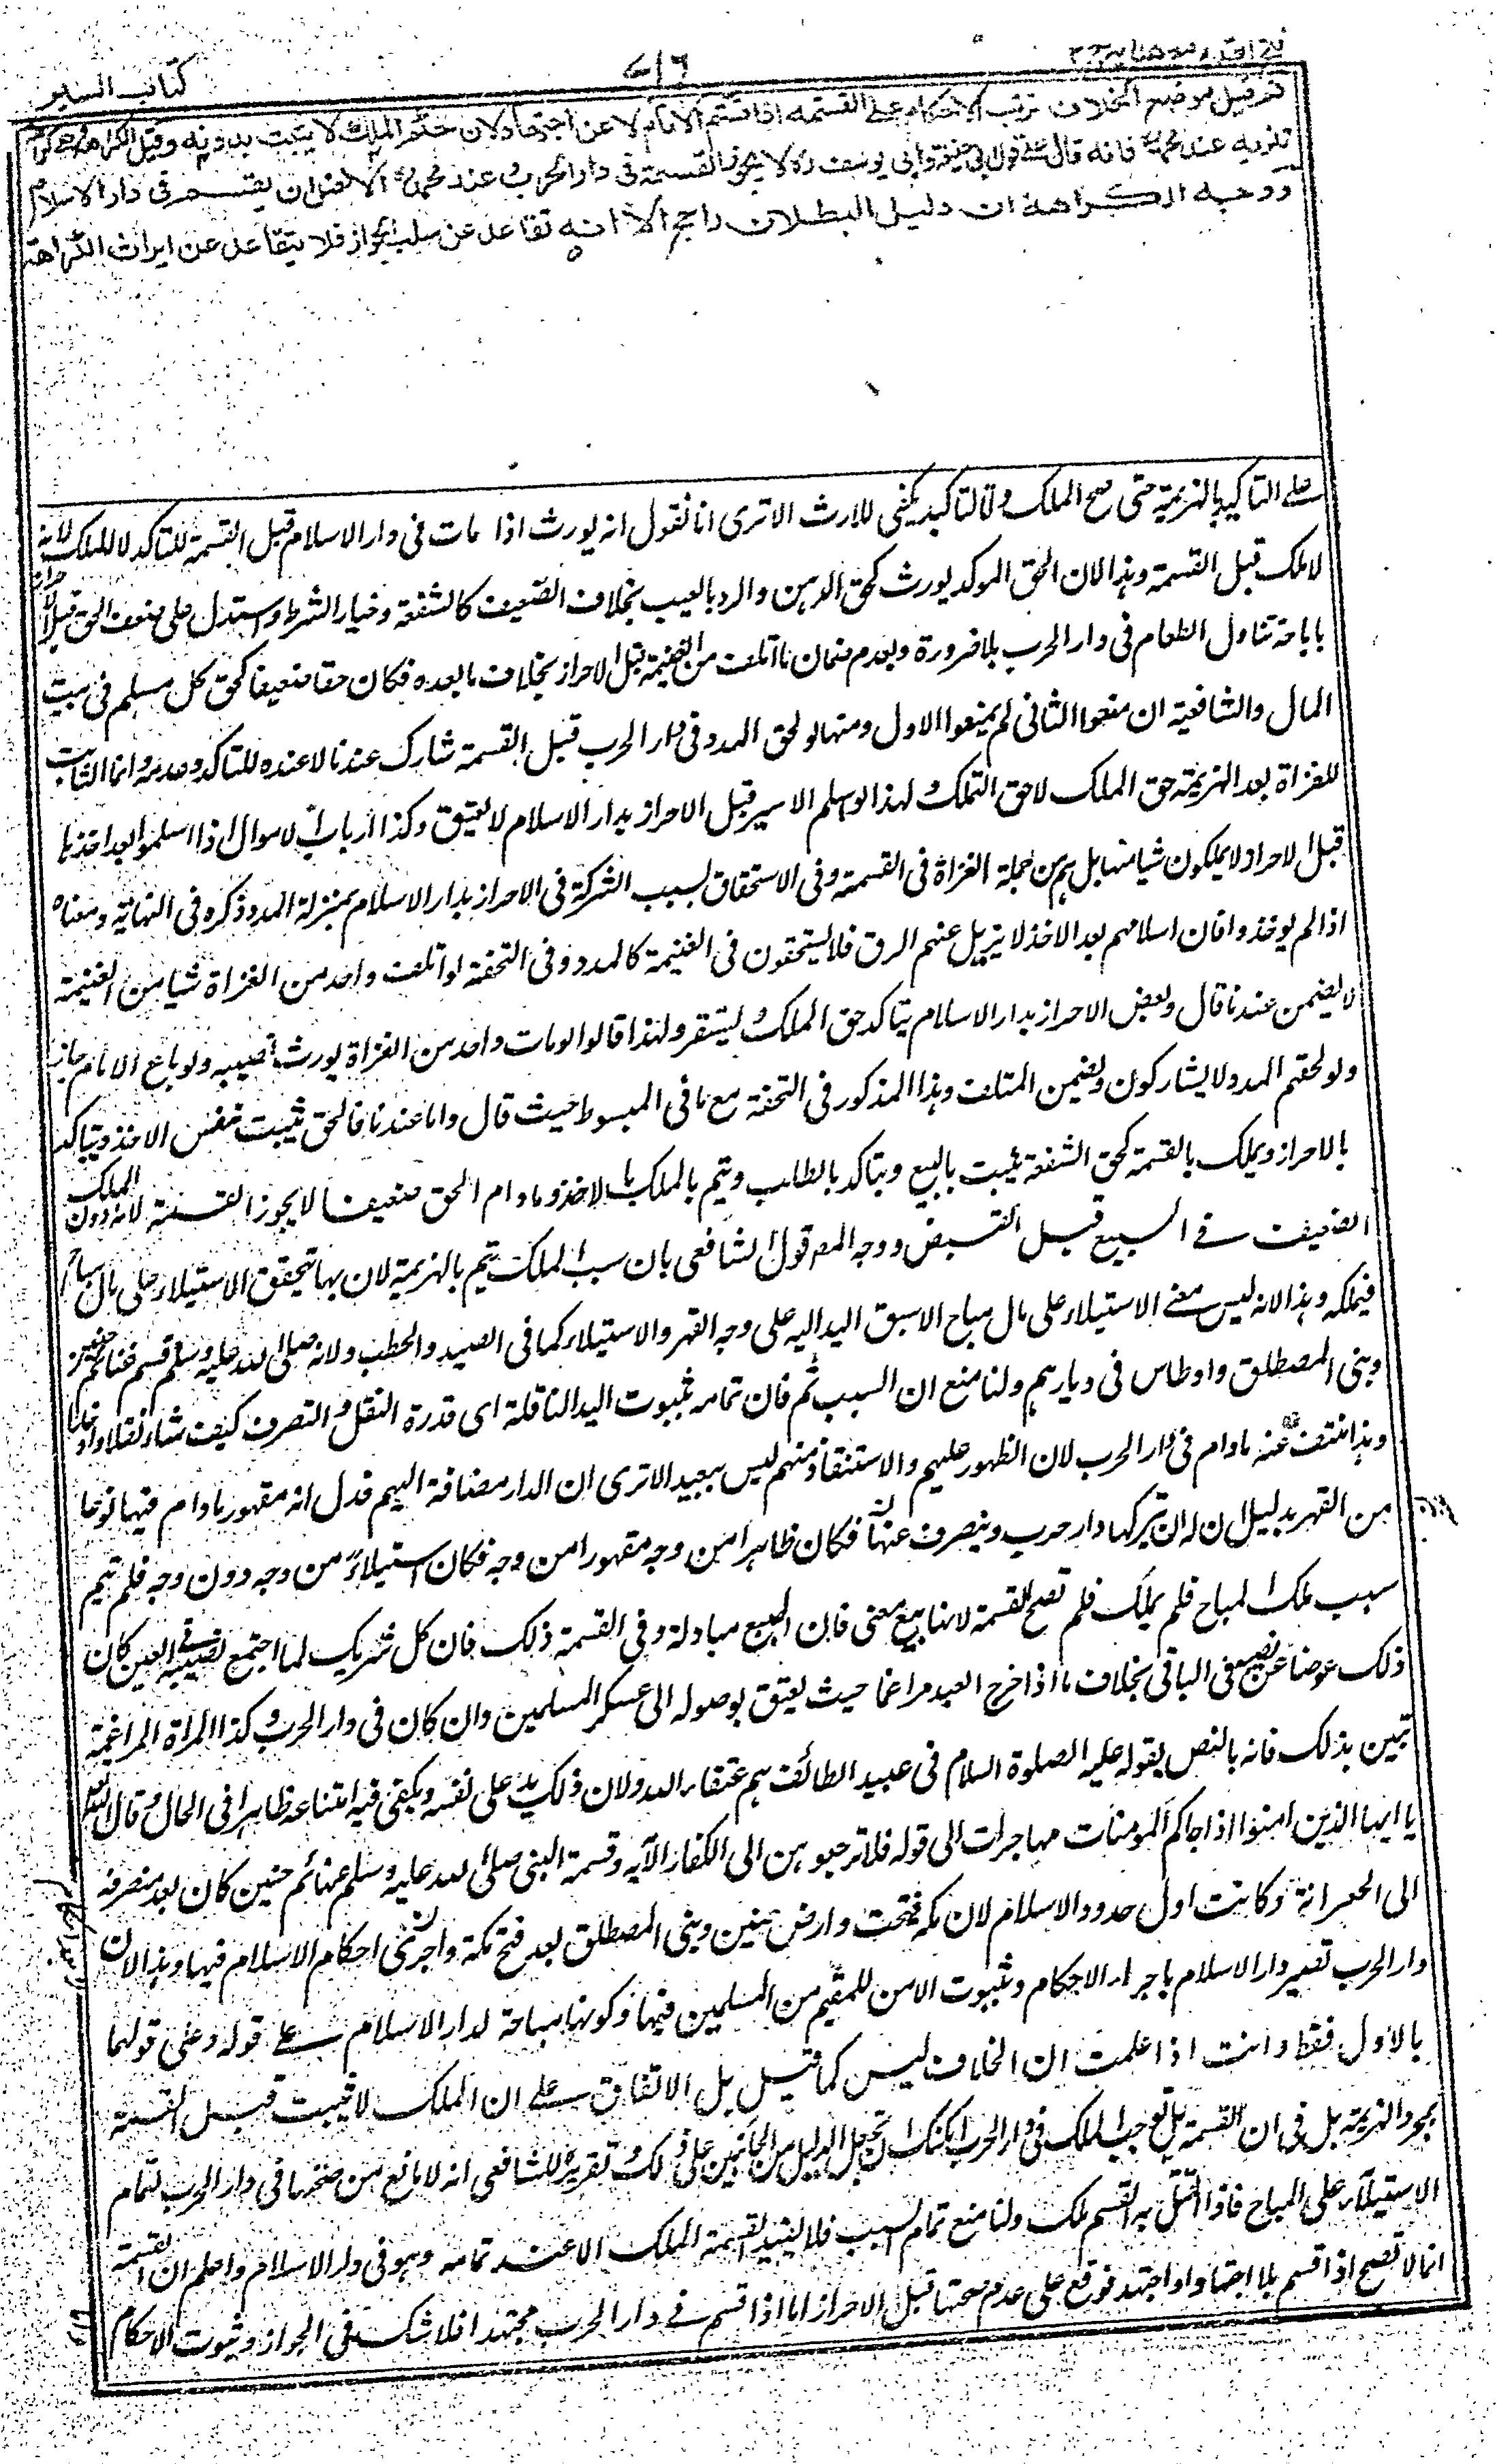 كتاب السير
٧١٦
فتح القدير مع هدايه ج ٢
ثم قيل موضع الخلاف ترتب الاحكام على القسمة اذا قسم الامام لا عن اجتهاد لان حكم الملك لا يثبت بدونه وقيل الكراهة وهي كراهة
تنزيه عند محمد فانه قال على قول ابي حنيفة وابي يوسف ره لا يجوز القسمة في دار الحرب وعند محمد الافضل ان يقسم في دار الاسلام
ووجه الكراهة ان دليل البطلان راجح الا انه تقاعد عن سلب الجواز فلا يتقاعد عن ايراث الكراهة
على التاكيد بالهزيمة حتى صح الملك والتاكيد يكفى للارث الا ترى انا نقول انه يورث اذا مات فى دار الاسلام قبل القسمة للتاكد لا للملك لانه
لا ملك قبل القسمة وهذا لان الحق الموكد يورث كحق الرهن والرد بالعيب بخلاف الضعيف كالشفعة وخيار الشرط واستدل على ضعف الحق قبل الاحراز
باباحة تناول الطعام فى دار الحرب بلا ضرورة وبعدم ضمان ما اتلف من الغنيمة قبل الاحراز بخلاف ما بعده فكان حقا ضعيفا كحق كل مسلم فى بيت
المال والشافعية ان منعوا الثانى لم يمنعوا الاول ومنها لو لحق المدد فى دار الحرب قبل القسمة شارك عندنا لا عنده للتاكد وعدمه وانما الثابت
للغزاة بعد الهزيمة حق الملك لا حق التملك ولهذا لو اسلم الاسير قبل الاحراز بدار الاسلام لا يعتق وكذا ارباب الاموال اذا اسلموا بعد اخذها
قبل الاحراز لا يملكون شيا منها بل هم من جملة الغزاة فى القسمة وفى الاستحقاق بسبب الشركة فى الاحراز بدار الاسلام بمنزلة المدد ذكره فى النهاية ومعناه
اذا لم يوخذوا فان اسلامهم بعد الاخذ لا يزيل عنهم الرق فلا يستحقون فى الغنيمة كالمدد وفى التحفة لو اتلف واحد من الغزاة شيا من الغنيمة
لا يضمن عندنا قال وبعض الاحراز بدار الاسلام يتاكد حق الملك ويستقر ولهذا قالوا لو مات واحد من الغزاة يورث نصيبه ولو باع الامام جاز
ولو لحقهم المدد لا يشاركون ويضمن المتلف وهذا المذكور فى التحفة مع ما فى المبسوط حيث قال واما عندنا فالحق يثبت بنفس الاخذ ويتاكد
بالاحراز ويملك بالقسمة كحق الشفعة يثبت بالبيع ويتاكد بالطلب ويتم بالملك بالاخذ وما دام الحق ضعيفا لا يجوز القسمة لانه دون الملك
الضعيف فى المبيع قبل القبض ووجه المص قول الشافعى بان سبب الملك يتم بالهزيمة لان بها تتحقق الاستيلاء على مال مباح
فيملكه وهذا لانه ليس معنى الاستيلاء على مال مباح الا سبق اليد اليه على وجه القهر والاستيلاء كما فى الصيد والحطب ولانه صلى الله عليه وسلم قسم غنائم حنين
وبنى المصطلق واوطاس فى ديارهم ولنا منع ان السبب تم فان تمامه بثبوت اليد الناقلة اى قدرة النقل والتصرف كيف شاء نقلا وادخارا
وهذا منتف عنه ما دام فى دار الحرب لان الظهور عليهم والاستنقاذ منهم ليس ببعيد الا ترى ان الدار مضافة اليهم فدل انه مقهور ما دام فيها نوعا
من القهر بدليل ان له ان يتركها دار حرب وينصرف عنها فكان ظاهرا من وجه مقهورا من وجه فكان استيلاء من وجه دون وجه فلم يتم
سبب ملك المباح فلم يملك فلم تصح القسمة لانها بيع معنى فان البيع مبادلة وفى القسمة ذلك فان كل شريك لما اجتمع نصيبه فى العين كان
ذلك عوضا عن نصيبه فى الباقى بخلاف ما اذا خرج العبد مراغما حيث يعتق بوصوله الى عسكر المسلمين وان كان فى دار الحرب وكذا المراة المراغمة
تبين بذلك فانه بالنص بقوله عليه الصلوة السلام فى عبيد الطائف هم عتقاء الله ولان ذلك يد على نفسه ويكفى فيه امتناعه ظاهرا فى الحال وقال تعالى
يا ايها الذين امنوا اذا جاءكم المومنات مهاجرات الى قوله فلا ترجعوهن الى الكفار الآية وقسمة النبى صلى الله عليه وسلم غنائم حنين كان بعد منصرفه
الى الجعرانة وكانت اول حدود الاسلام لان مكة فتحت وارض حنين وبنى المصطلق بعد فتح مكة واجرى احكام الاسلام فيها وهذا لان
دار الحرب تصير دار الاسلام باجراء الاحكام وثبوت الامن للمقيم من المسلمين فيها وكونها متاخمة لدار الاسلام على قوله وعلى قولهما
بالاول فقط وانت اذا علمت ان الخلاف ليس كما قيل بل الاتفاق على ان الملك لا يثبت قبل القسمة
بمجرد الهزيمة بل فى ان القسمة هل توجب الملك فى دار الحرب امكنك ان تجعل الدليل من الجانبين على ذلك وتقريره للشافعى انه لا مانع من صحتها فى دار الحرب لتمام
الاستيلاء على المباح فاذا اتصل به القسم ملك ولنا منع تمام السبب فلا يفيد القسمة الملك الا عند تمامه وهو فى دار الاسلام واعلم ان القسمة
انما لا تصح اذا قسم بلا اجتهاد او اجتهد فوقع على عدم صحتها قبل الاحراز اما اذا قسم فى دار الحرب مجتهدا فلا شك فى الجواز وثبوت الاحكام